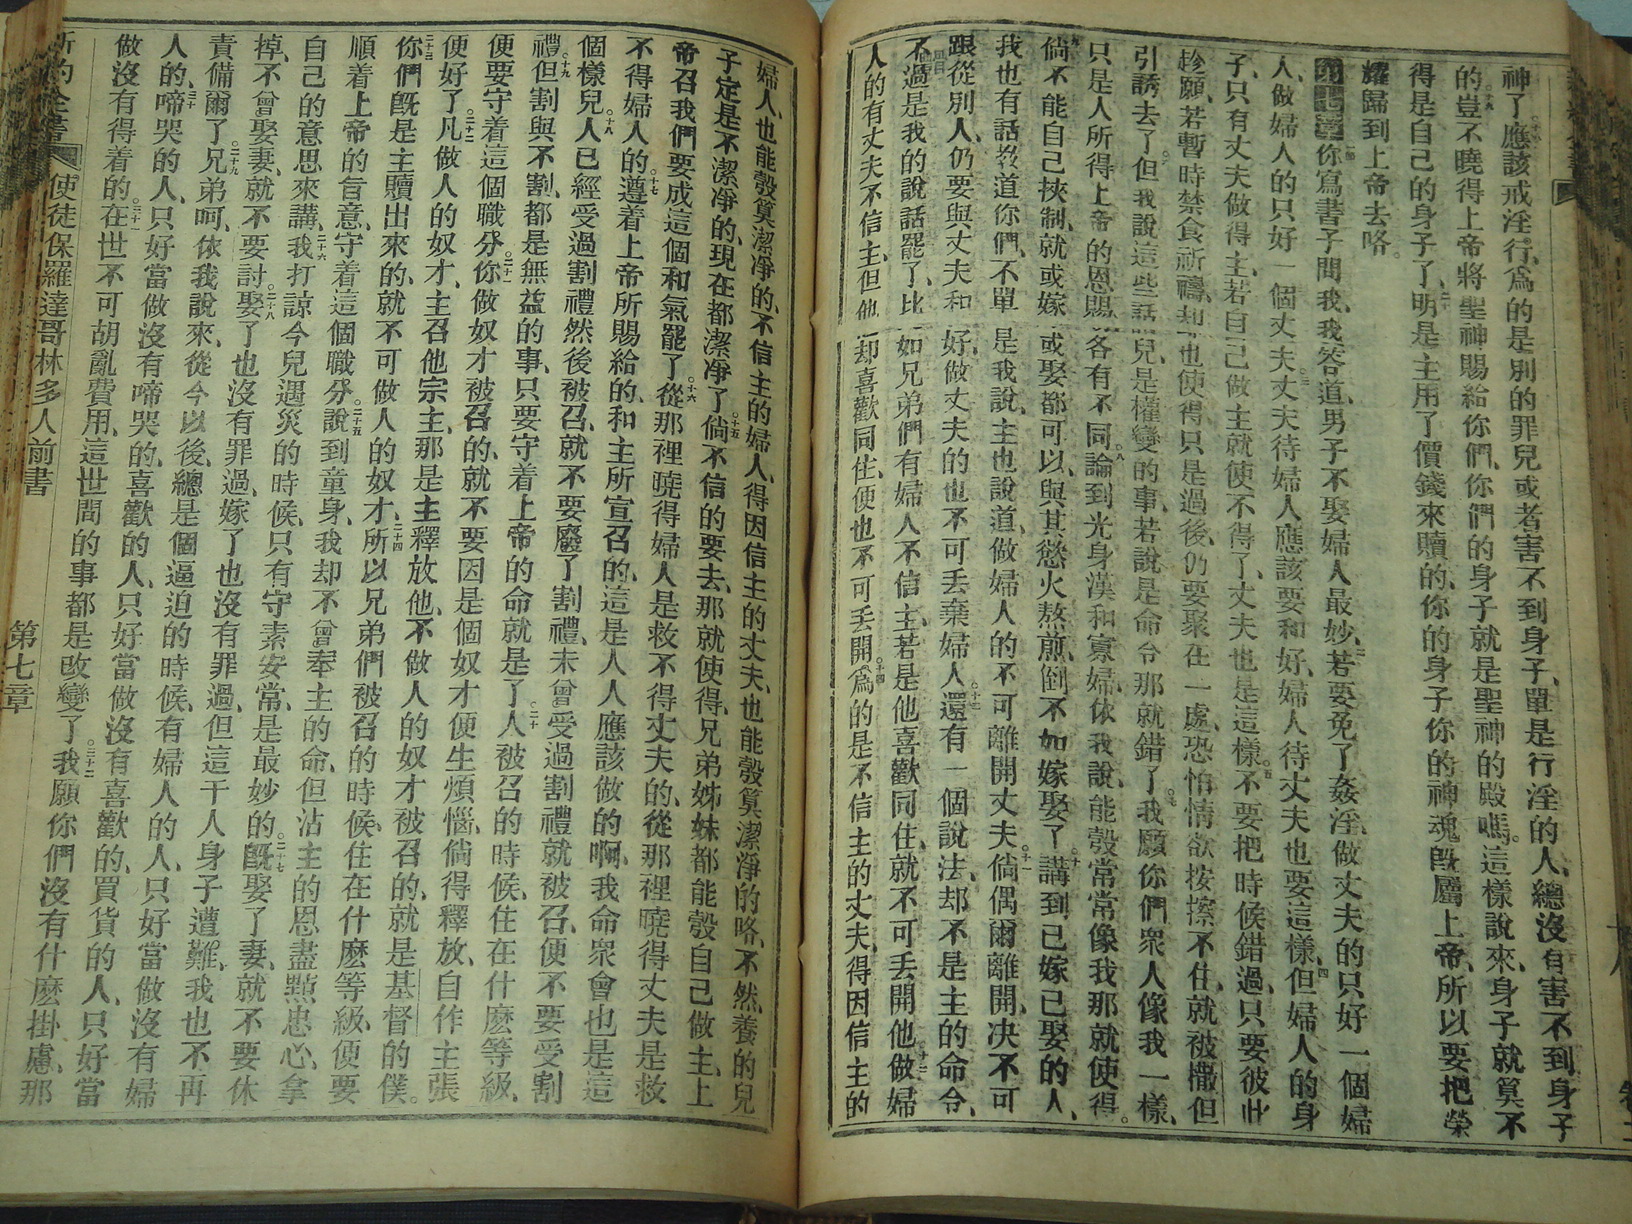 神了。十八應該戒淫行、爲的是別的罪兒或者害不到身子、單是行淫的人、總沒有害不到身子
的。十九豈不曉得上帝將聖神賜給你們、你們的身子就是聖神的殿嗎。這樣說來、身子就算不
得是自己的身子了、二十明是主用了價錢來贖的、你的身子你的神魂旣屬上帝、所以要把榮
耀歸到上帝去咯。
第七章一你寫書子問我、我答道、男子不娶婦人最妙、二若要免了姦淫、做丈夫的只好一個婦
人、做婦人的只好一個丈夫。三丈夫待婦人應該要和好、婦人待丈夫也要這樣、四但婦人的身
子、只有丈夫做得主、若自己做主就使不得了、丈夫也是這樣。五不要把時候錯過、只要彼此
趁願、若暫時禁食祈禱、却也使得、只是過後、仍要聚在一處、恐怕情欲按擦不住、就被撒但
引誘去了。六但我說這些話兒、是權變的事、若說是命令那就錯了。七我願你們衆人像我一樣、
只是人所得上帝的恩賜、各有不同。八論到光身漢和寡婦、依我說、能彀常常像我那就使得。
九倘不能自己挾制、就或嫁或娶都可以、與其慾火熬煎、倒不如嫁娶了。十講到已嫁已娶的人、
我也有話敎道你們、不單是我說、主也說道、做婦人的不可離開丈夫、十一倘偶爾離開、决不可
跟從別人、仍要與丈夫和好、做丈夫的也不可丢棄婦人。十二還有一個說法、却不是主的命令、
不過是我的說話罷了、比如兄弟們有婦人不信主、若是他喜歡同住、就不可丢開他、十三做婦
人的有丈夫不信主、但他却喜歡同住、便也不可丢開。十四爲的是不信主的丈夫、得因信主的
婦人、也能彀算潔凈的、不信主的婦人、得因信主的丈夫、也能彀算潔凈的咯、不然養的兒
子定是不潔凈的、現在都潔凈了。十五倘不信的要去、那就使得、兄弟姊妹都能彀自己做主、上
帝召我們要成這個和氣罷了。十六從那裡曉得婦人是救不得丈夫的、從那裡曉得丈夫是救
不得婦人的。十七遵着上帝所賜給的、和主所宣召的、這是人人應該做的啊、我命衆會也是這
個樣兒。十八人已經受過割禮然後被召、就不要廢了割禮、未曾受過割禮就被召、便不要受割
禮。十九但割與不割、都是無益的事、只要守着上帝的命就是了。二十人被召的時候、住在什麽等級、
便要守着這個職分。二十一你做奴才被召的、就不要因是個奴才便生煩惱、倘得釋放、自作主張
便好了。二十二凡做人的奴才、主召他宗主、那是主釋放他、不做人的奴才被召的、就是基督的僕。
二十三你們旣是主贖出來的、就不可做人的奴才。二十四所以兄弟們被召的時候、住在什麽等級、便要
順着上帝的旨意、守着這個職分。二十五說到童身、我却不曾奉主的命、但沾主的恩盡點忠心、拿
自己的意思來講、二十六我打諒今兒遇災的時候、只有守素安常、是最妙的。二十七旣娶了妻、就不要休
掉、不曾娶妻、就不要討、二十八娶了也沒有罪過、嫁了也沒有罪過、但這干人身子遭難、我也不再
責備爾了。二十九兄弟呵、依我說來、從今以後、總是個逼迫的時候、有婦人的人、只好當做沒有婦
人的、三十啼哭的人、只好當做沒有啼哭的、喜歡的人、只好當做沒有喜歡的、買貨的人、只好當
做沒有得着的、三十一在世不可胡亂費用、這世間的事都是改變了。三十二我願你們沒有什麽掛慮、那
新約全書 使徒保羅達哥林多人前書 第七章